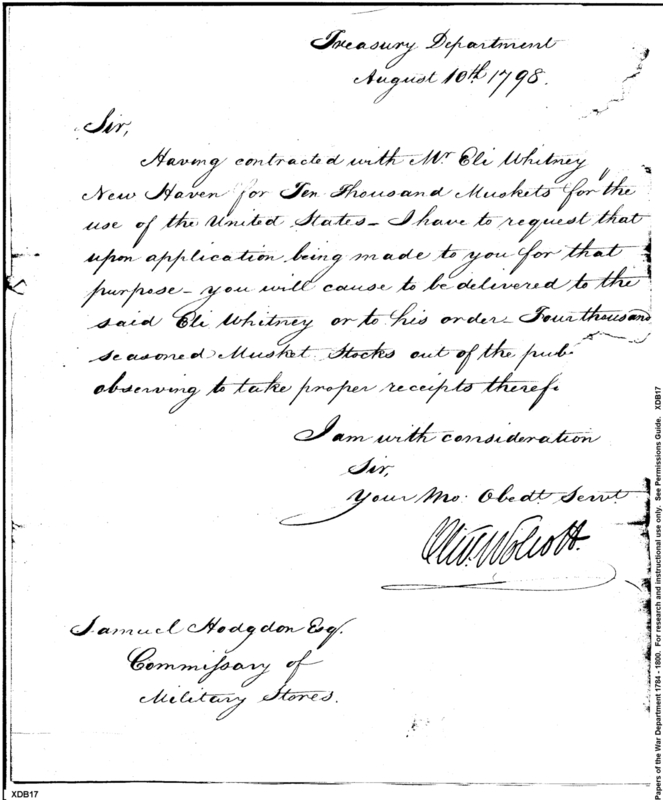 Treasury Department
August 10th 1798.
Sir,
Having contracted with Mr Eli Whitney
New Haven for Ten Thousand Muskets for the
use of the United States – I have to request that
upon application being made to you for that
purpose – you will cause to be delivered to the
said Eli Whitney or to his order – Four thousand
seasoned Musket Stocks out of the pub
observing to take proper receipts theref
I am with consideration
Sir,
Your Mo: Obedt. Servt.
Oliv. Wolcott.
Samuel Hodgdon Esqr.
Commissary of
Military Stores.
XDB17
Papers of the War Department 1784 - 1800. For research and instructional use only. See Permissions Guide. XDB17